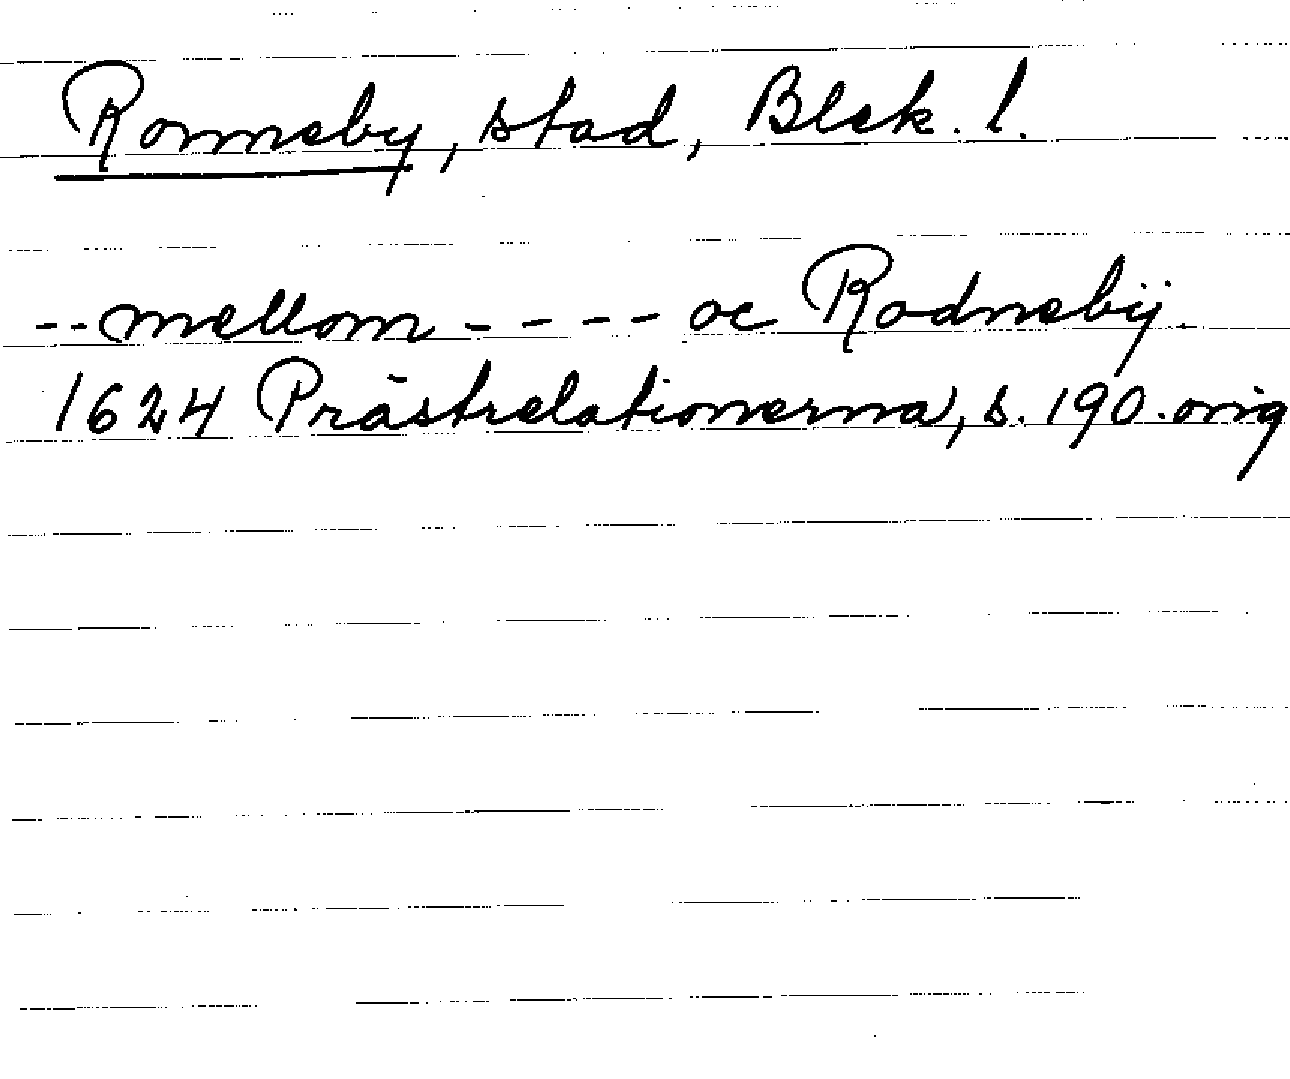 Ronneby, stad, Blek. l.
-- mellom - - - - oc Rodnebÿ.
1624 Prästrelationerna, s. 190. orig